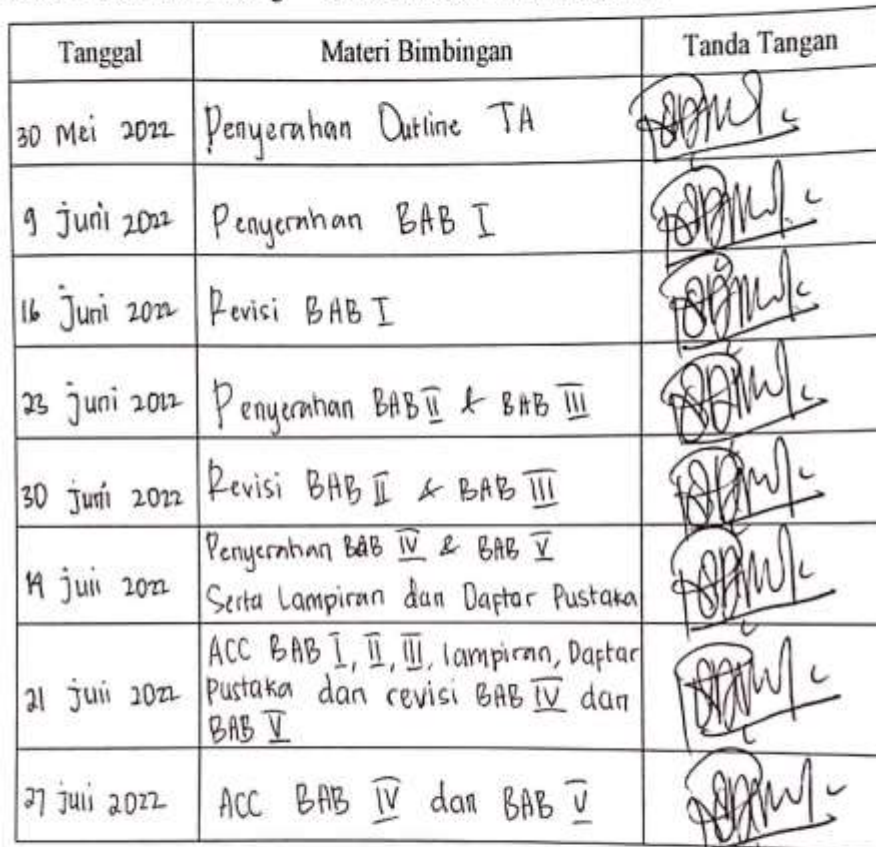 Tanggal Materi Bimbingan Tanda Tangan
30 Mei 2022 Penyerahan Outline TA
9 Juni 2022 Penyerahan BAB I
16 Juni 2022 Revisi BAB I
23 Juni 2022 Penyerahan BAB II & BAB III
30 Juni 2022 Revisi BAB II & BAB III
Penyerahan BAB IV & BAB V
14 Juli 2022 Serta Lampiran dan Daftar Pustaka
ACC BAB I, II, III, lampiran, Daftar
21 Juli 2022 Pustaka dan revisi BAB IV dan
BAB V
27 Juli 2022 ACC BAB IV dan BAB V